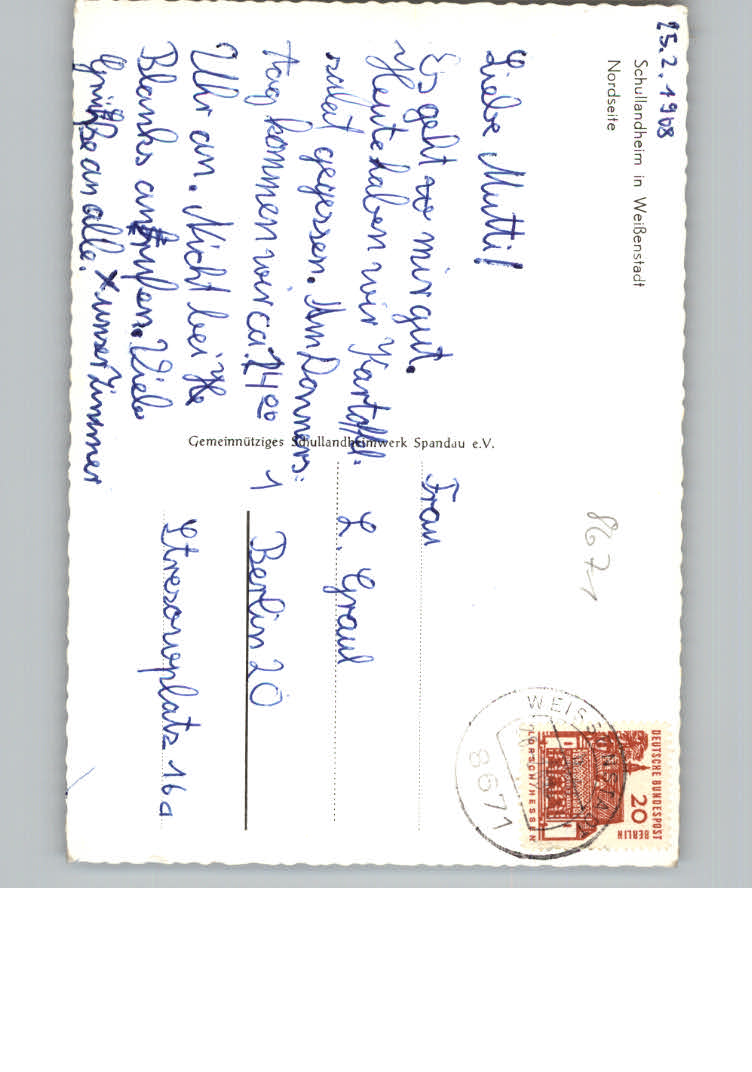 25.2.1968
Schullandheim in Weißenstadt
Nordseite
Liebe Mutti!
Es geht mir gut.
Heute haben wir Kartoffel-
salat gegessen. Am Donners-
tag kommen wir ca. 14 00
Uhr an. Nicht bei
Blanks anrufen. Viele
Grüße an alle.
X unser Zimmer
Gemeinnütziges Schullandheimwerk Spandau e.V.
Frau
L. Graul
1 Berlin 20
Stresowplatz 16a
8671
DEUTSCHE BUNDESPOST
BERLIN
20
LORSCH/HESSEN
WEISSENSTADT
8671